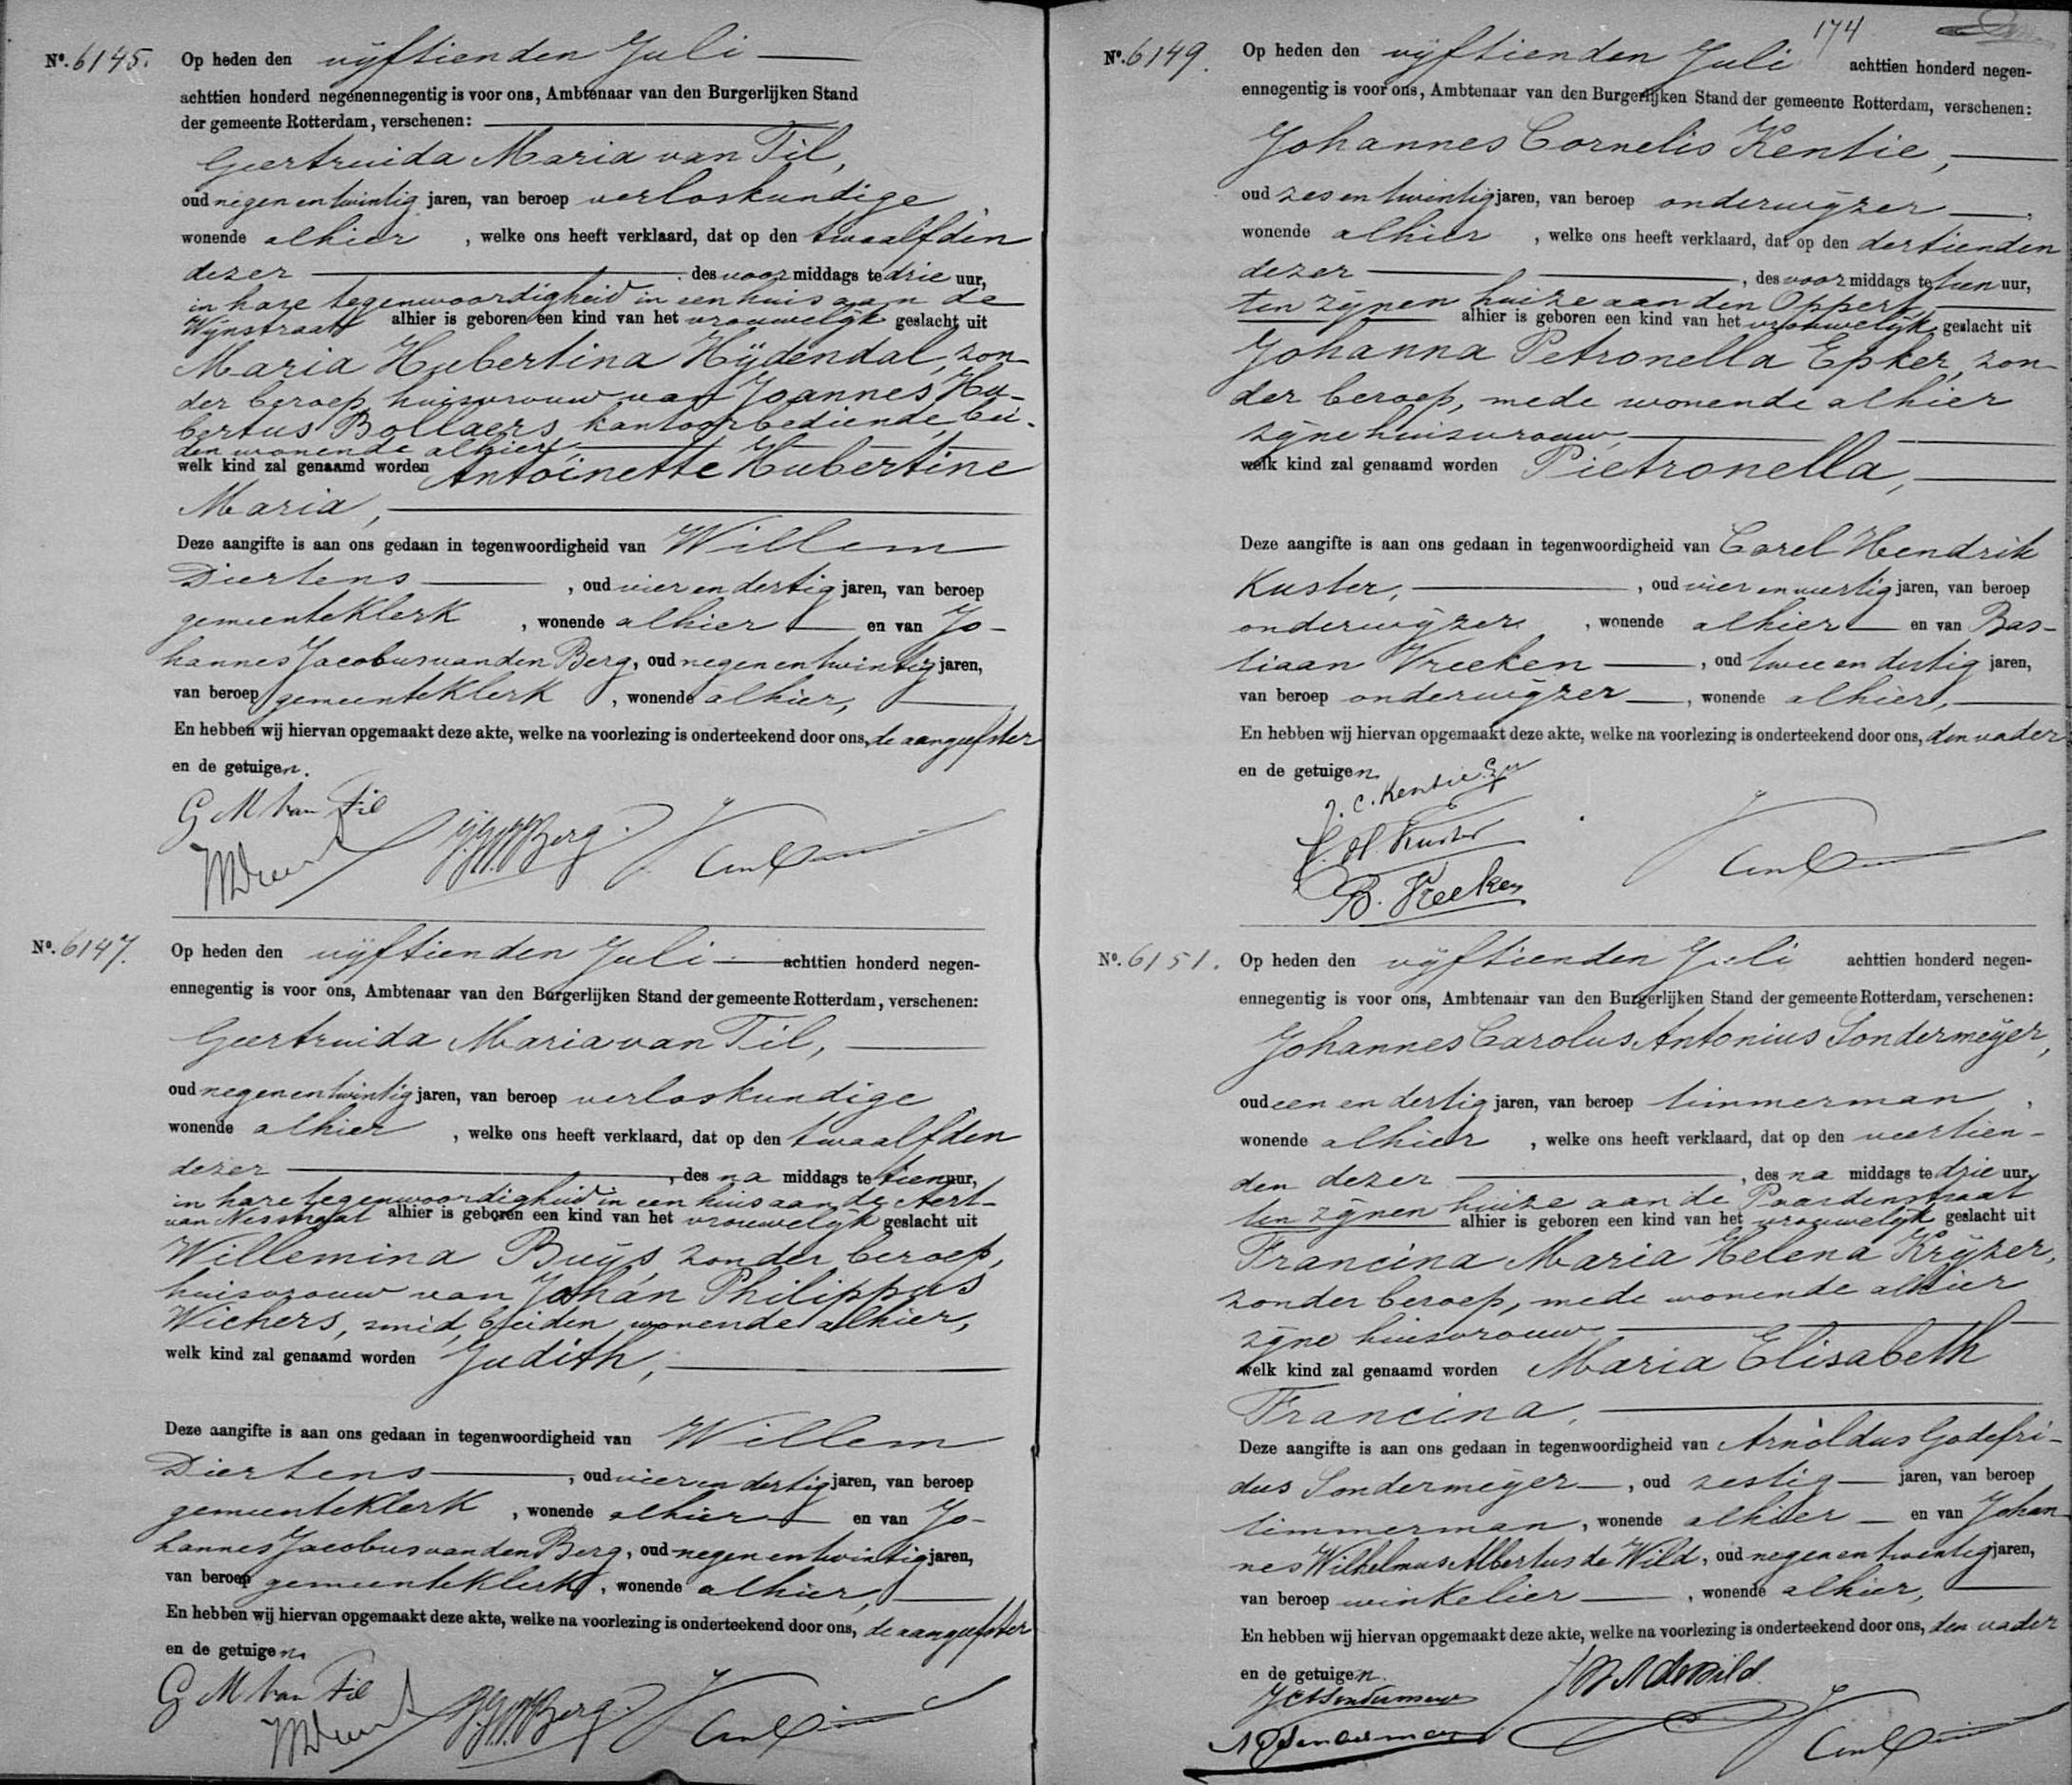 Nº. 6145. Op heden den vijftienden Juli
achttien honderd negenennegentig is voor ons, Ambtenaar van den Burgerlijken Stand
der gemeente Rotterdam, verschenen:
Geertruida Maria van Til,
oud negen en twintig jaren, van beroep verloskundige
wonende alhier, welke ons heeft verklaard, dat op den twaalfden
dezer des voormiddags te drie uur,
in hare tegenwoordigheid in een huis aan de
Wijnstraat alhier is geboren een kind van het vrouwelijk geslacht uit
Maria Hubertina Hijdendal, zon-
der beroep, huisvrouw van Joannes Hu-
bertus Bollaers, kantoorbediende, bei-
den wonende alhier
welk kind zal genaamd worden Antoinette Hubertine
Maria,
Deze aangifte is aan ons gedaan in tegenwoordigheid van Willem
Diertens, oud vier en dertig jaren, van beroep
gemeenteklerk, wonende alhier en van Jo-
hannes Jacobus van den Berg, oud negen en twintig jaren,
van beroep gemeenteklerk, wonende alhier,
En hebben wij hiervan opgemaakt deze akte, welke na voorlezing is onderteekend door ons, de aangeefster
en de getuigen.
G M van Til
Nº. 6147. Op heden den vijftienden Juli achttien honderd negen-
ennegentig is voor ons, Ambtenaar van den Burgerlijken Stand der gemeente Rotterdam, verschenen:
Geertruida Maria van Til,
oud negen en twintig jaren, van beroep verloskundige
wonende alhier, welke ons heeft verklaard, dat op den twaalfden
dezer, des na middags te tien uur,
in hare tegenwoordigheid in een huis aan de Aert-
van Nesstraat alhier is geboren een kind van het vrouwelijk geslacht uit
Willemina Buijs, zonder beroep,
huisvrouw van Johan Philippus
Wichers, smid, beiden wonende alhier,
welk kind zal genaamd worden Judith,
Deze aangifte is aan ons gedaan in tegenwoordigheid van Willem
Diertens, oud vier en dertig jaren, van beroep
gemeenteklerk, wonende alhier en van Jo-
hannes Jacobus van den Berg, oud negen en twintig jaren,
van beroep gemeenteklerk, wonende alhier,
En hebben wij hiervan opgemaakt deze akte, welke na voorlezing is onderteekend door ons, de aangeefster
en de getuigen.
G M van Til
174
Nº. 6149. Op heden den vijftienden Juli achttien honderd negen-
ennegentig is voor ons, Ambtenaar van den Burgerlijken Stand der gemeente Rotterdam, verschenen:
Johannes Cornelis Kentie,
oud zes en twintig jaren, van beroep onderwijzer,
wonende alhier, welke ons heeft verklaard, dat op den dertienden
dezer, des voormiddags te tien uur,
ten zijnen huize aan den Oppert,
alhier is geboren een kind van het vrouwelijk geslacht uit
Johanna Petronella Epker, zon-
der beroep, mede wonende alhier
zijne huisvrouw,
welk kind zal genaamd worden Pietronella,
Deze aangifte is aan ons gedaan in tegenwoordigheid van Carel Hendrik
Kuster, oud vier en veertig jaren, van beroep
onderwijzer, wonende alhier en van Bas-
tiaan Vreeken, oud twee en dertig jaren,
van beroep onderwijzer, wonende alhier,
En hebben wij hiervan opgemaakt deze akte, welke na voorlezing is onderteekend door ons, den vader
en de getuigen
J. C. Kentie
C. H. Kuster
B. Vreeken
Nº. 6151. Op heden den vijftienden Juli achttien honderd negen-
ennegentig is voor ons, Ambtenaar van den Burgerlijken Stand der gemeente Rotterdam, verschenen:
Johannes Carolus Antonius Sondermeijer,
oud een en dertig jaren, van beroep timmerman,
wonende alhier, welke ons heeft verklaard, dat op den veertien-
den dezer, des na middags te drie uur,
ten zijnen huize aan de Paardenstraat
alhier is geboren een kind van het vrouwelijk geslacht uit
Francina Maria Helena Krijzer,
zonder beroep, mede wonende alhier
zijne huisvrouw
welk kind zal genaamd worden Maria Elisabeth
Francina,
Deze aangifte is aan ons gedaan in tegenwoordigheid van Arnoldus Godefri-
dus Sondermeijer, oud zestig jaren, van beroep
timmerman, wonende alhier en van Johan-
nes Wilhelmus Albertus de Wild, oud negen en twintig jaren,
van beroep winkelier, wonende alhier,
En hebben wij hiervan opgemaakt deze akte, welke na voorlezing is onderteekend door ons, den vader
en de getuigen.